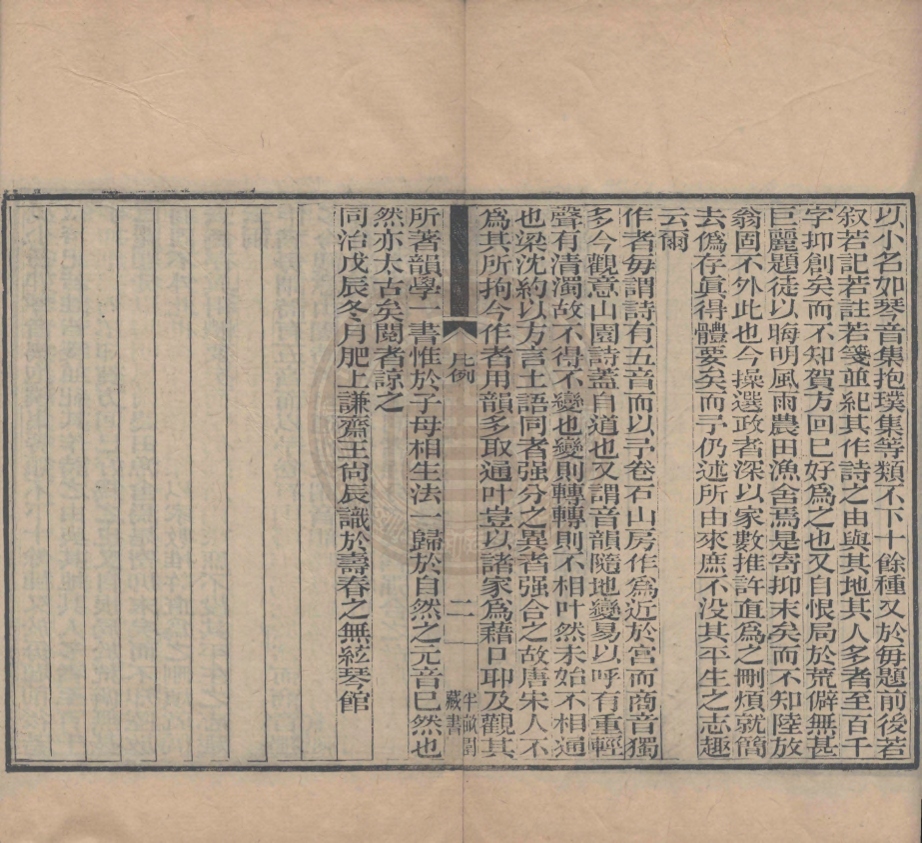 以小名如琴音集抱璞集等類不下十餘種又於每題前後若
叙若記若註若箋並紀其作詩之由與其地其人多者至百千
字抑創矣而不知賀方回已好為之也又自恨局於荒僻無甚
巨麗題徒以晦明風雨農田漁舍焉是寄抑末矣而不知陸放
翁固不外此也今操選政者深以家數推許亟為之刪煩就簡
去偽存真得體要矣而予仍述所由來庶不没其平生之志趣
云爾
作者每謂詩有五音而以予卷石山房作為近於宮而商音獨
多今觀意山園詩蓋自道也又謂音韻隨地變易以呼有重輕
聲有清濁故不得不變也變則轉轉則不相叶然未始不相通
也梁沈約以方言土語同者强分之異者强合之故唐宋人不
為其所拘今作者用韻多取通叶豈以諸家為藉口耶及觀其
凡例
二
半畝園
藏書
所著韻學一書惟於子母相生法一歸於自然之元音已然也
然亦太古矣閱者諒之
同治戊辰冬月肥上謙齋王尚辰識於壽春之無絃琴館